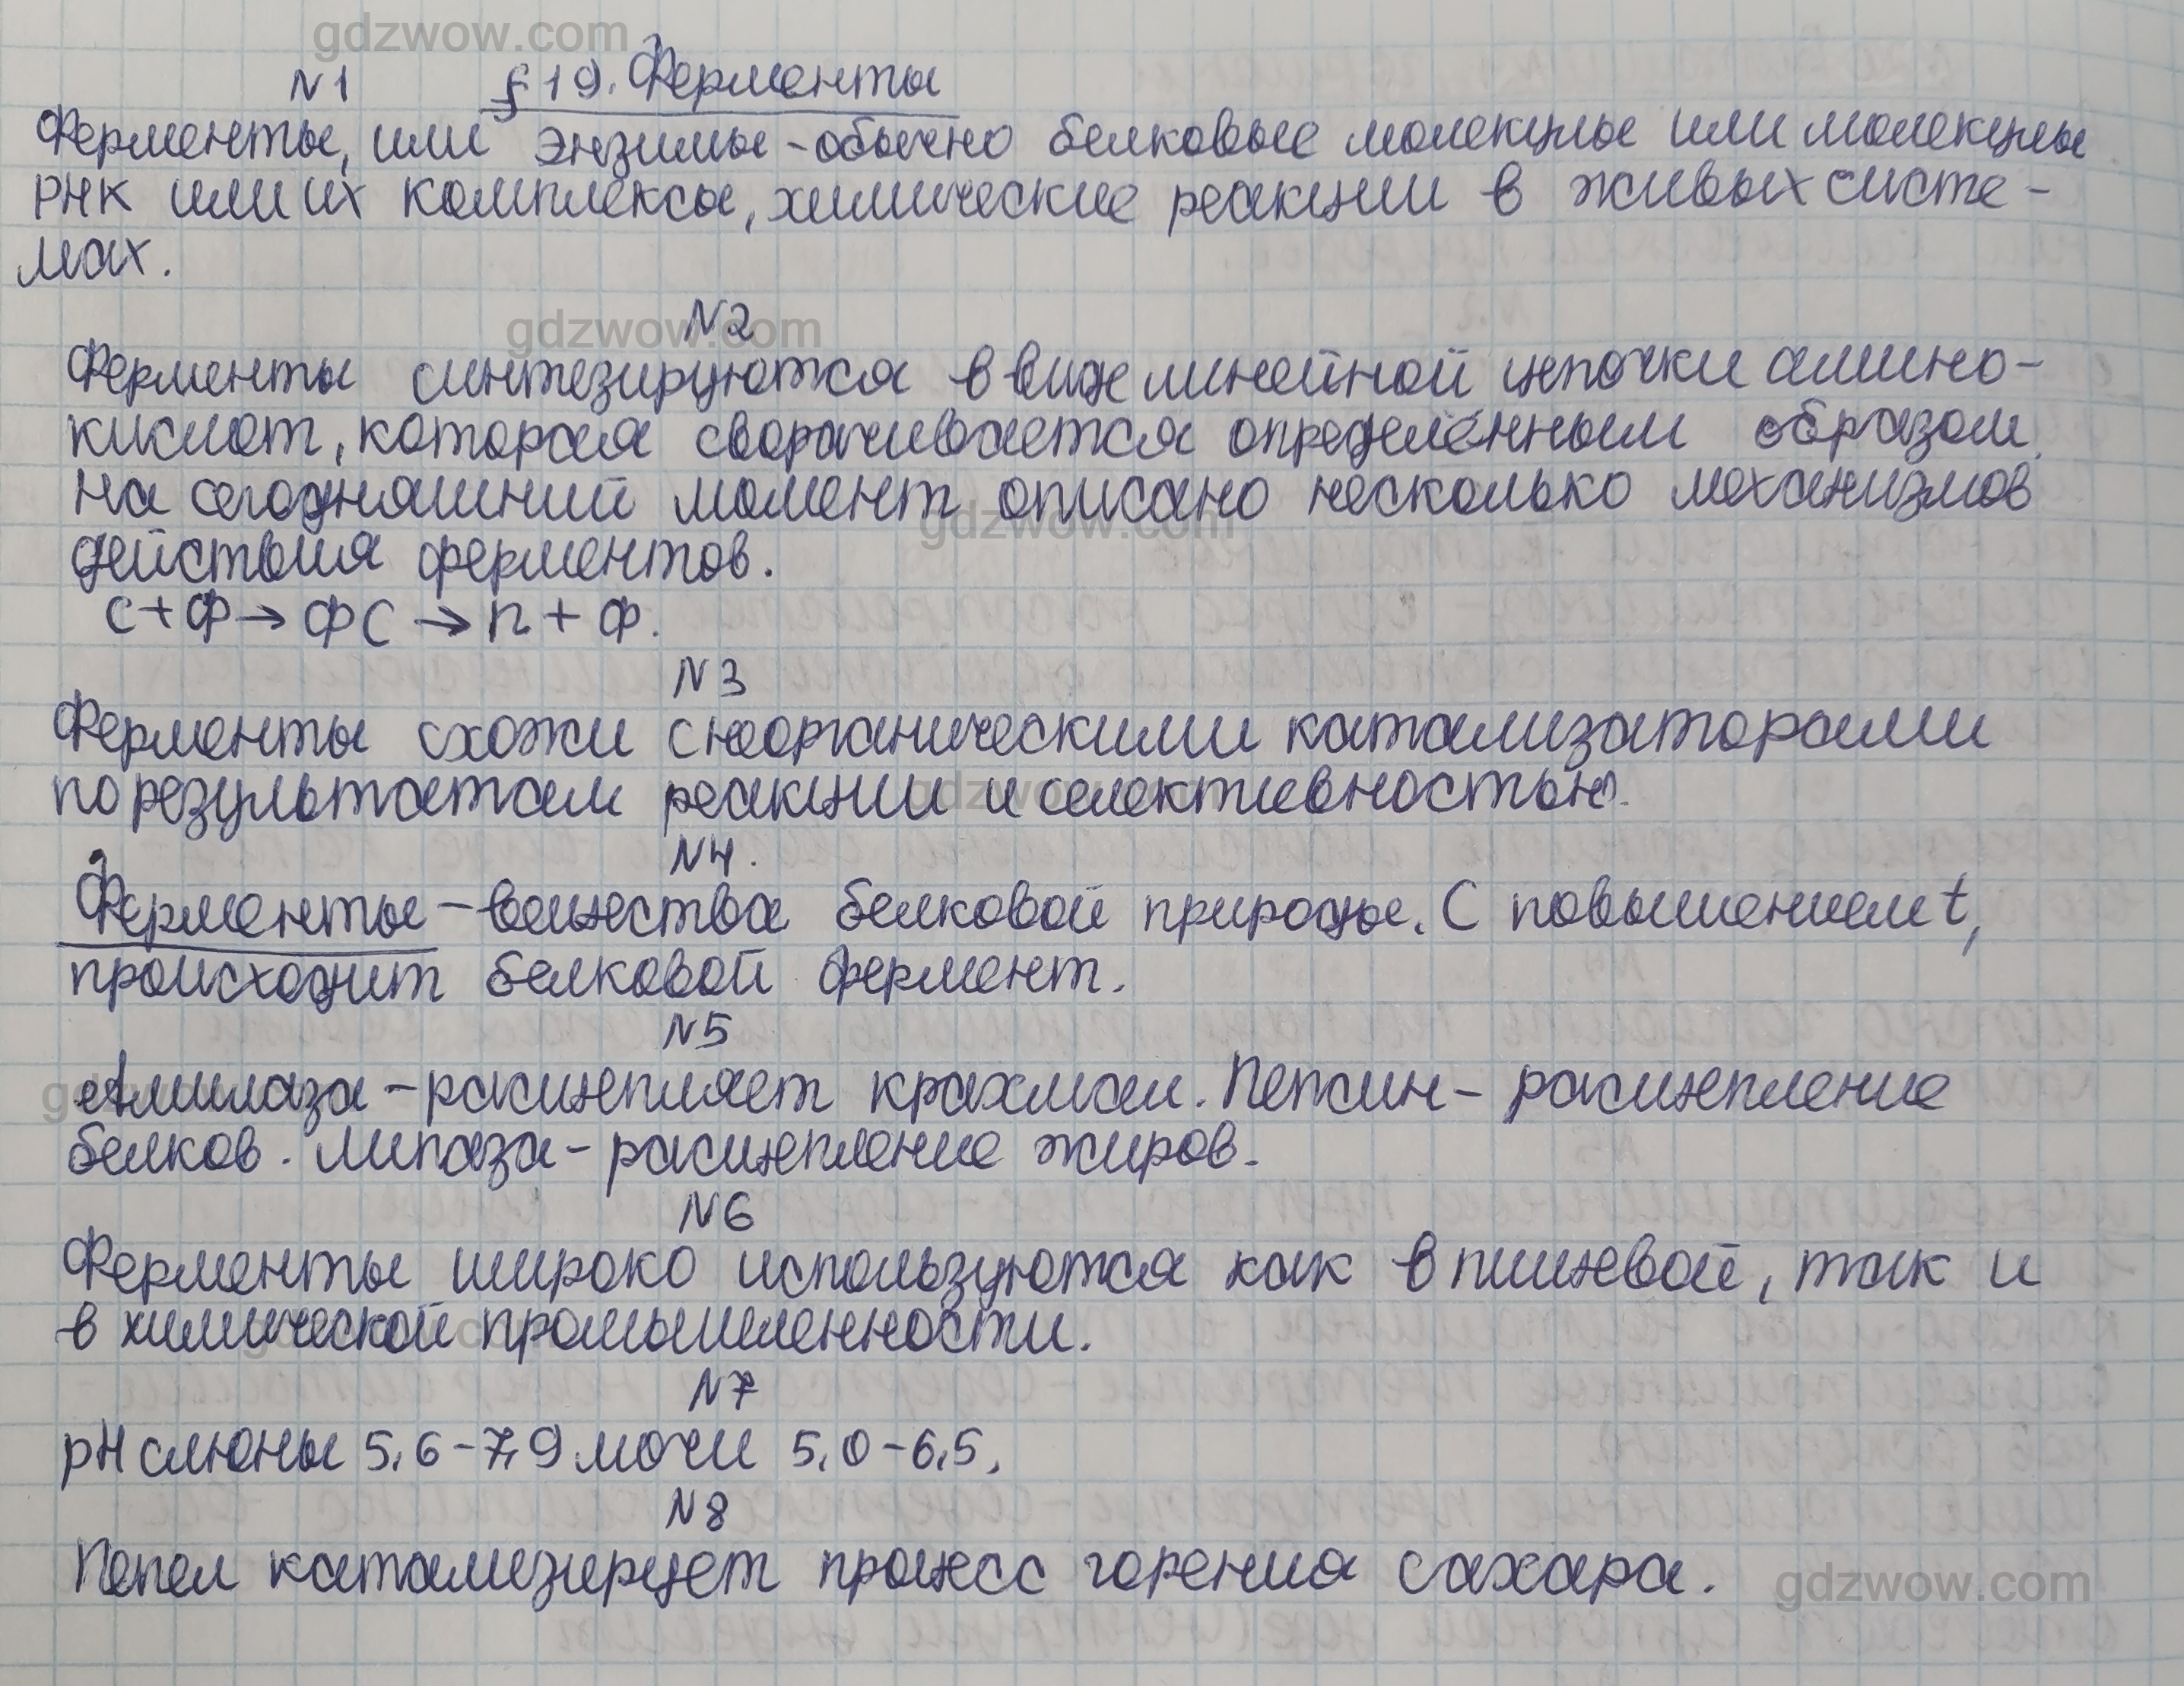 gdzwow.com
N1 § 19. Ферменты
Ферменты, или энзимы - обычно белковые молекулы или молекулы
РНК или их комплексы, химические реакции в живых систе-
мах.
N2
gdzwow.com
Ферменты синтезируются в виде линейной цепочки амино-
кислот, которая сворачивается определённым образом.
На сегодняшний момент описано несколько механизмов
gdzwow.com
действия ферментов.
С + Ф → ФС → П + Ф.
N3
Ферменты схожи с неорганическими катализаторами
по результатам реакции и селективностью.
gdzwow.com
N4.
Ферменты - вещества белковой природы. С повышением t,
происходит белковой фермент.
N5
Амилаза - расщепляет крахмал. Пепсин - расщепление
белков. Липаза - расщепление жиров.
N6
Ферменты широко используются как в пищевой, так и
в химической промышленности.
N7
pH слюны 5,6-7,9 мочи 5,0-6,5.
N8
Пепел катализирует процесс горения сахара.
gdzwow.com